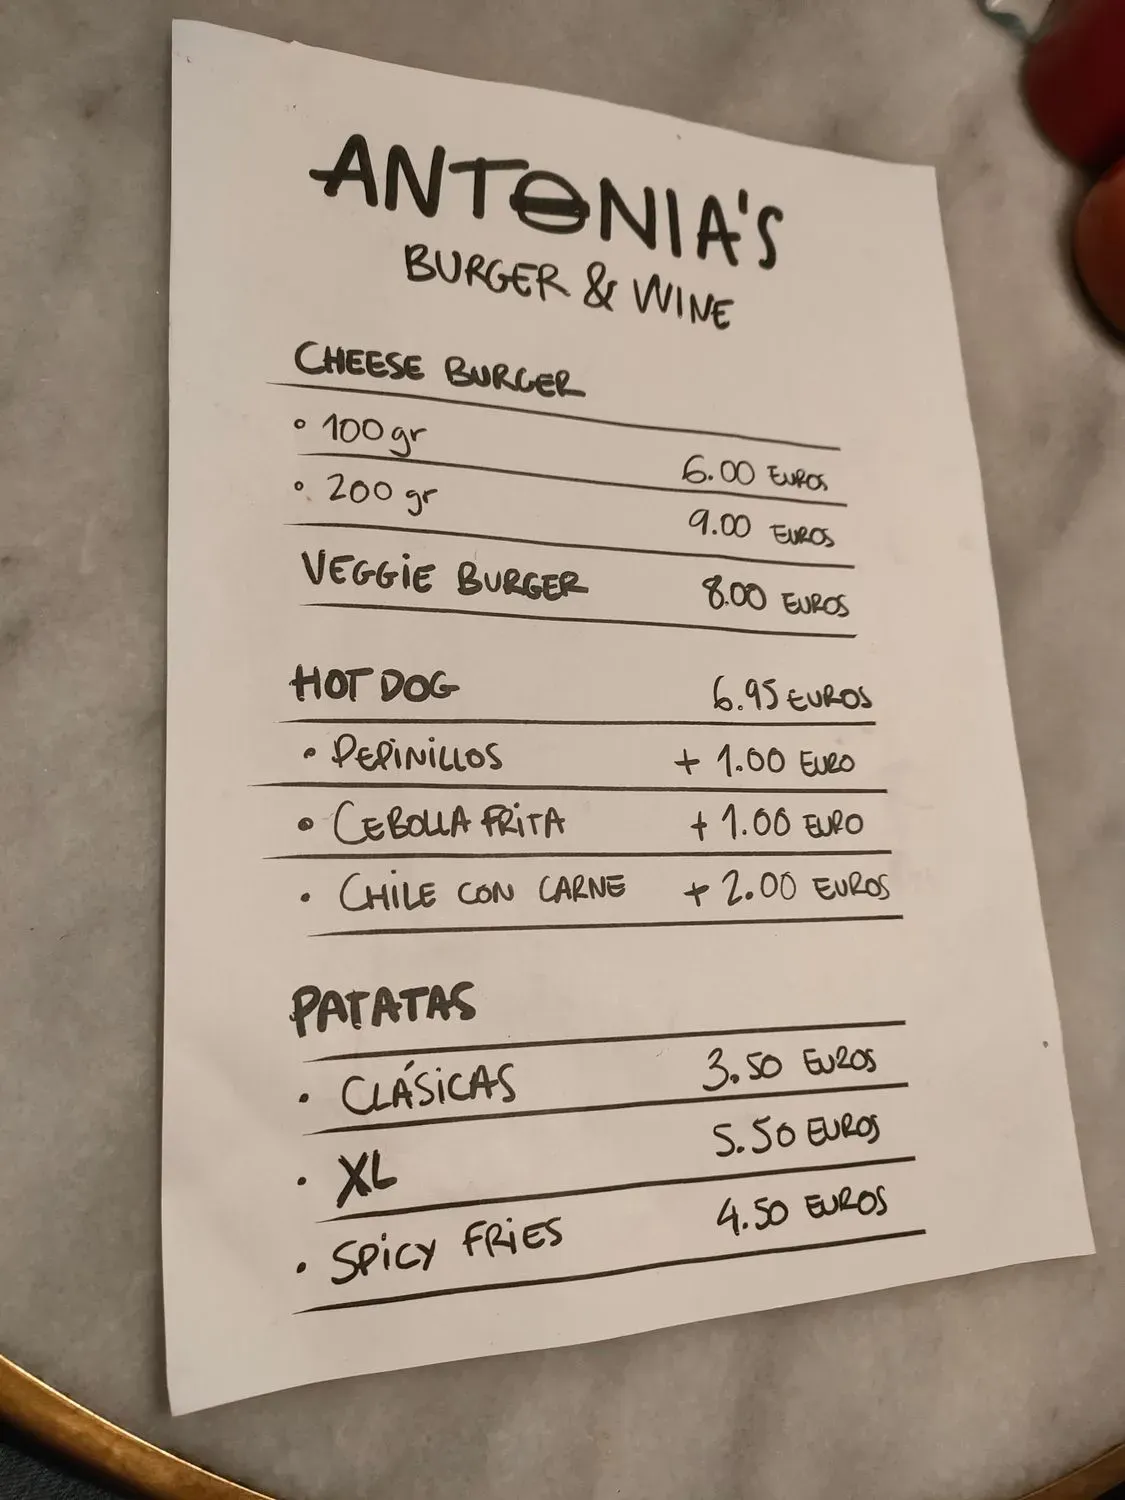 ANTONIA'S
BURGER & WINE
CHEESE BURGER
• 100 gr 6.00 EUROS
• 200 gr 9.00 EUROS
VEGGIE BURGER 8.00 EUROS
HOT DOG 6.95 EUROS
• PEPINILLOS + 1.00 EURO
• CEBOLLA FRITA + 1.00 EURO
• CHILE CON CARNE + 2.00 EUROS
PATATAS
• CLÁSICAS 3.50 EUROS
• XL 5.50 EUROS
• SPICY FRIES 4.50 EUROS